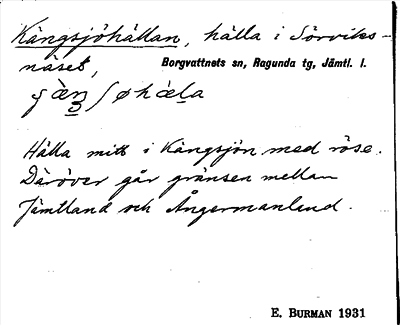 Kängsjöhällan, hälla i Sörviks-
näset, Borgvattnets sn, Ragunda tg, Jämtl. l.
Hälla mitt i Kängsjön med röse.
Däröver går gränsen mellan
Jämtland och Ångermanland.
E. BURMAN 1931